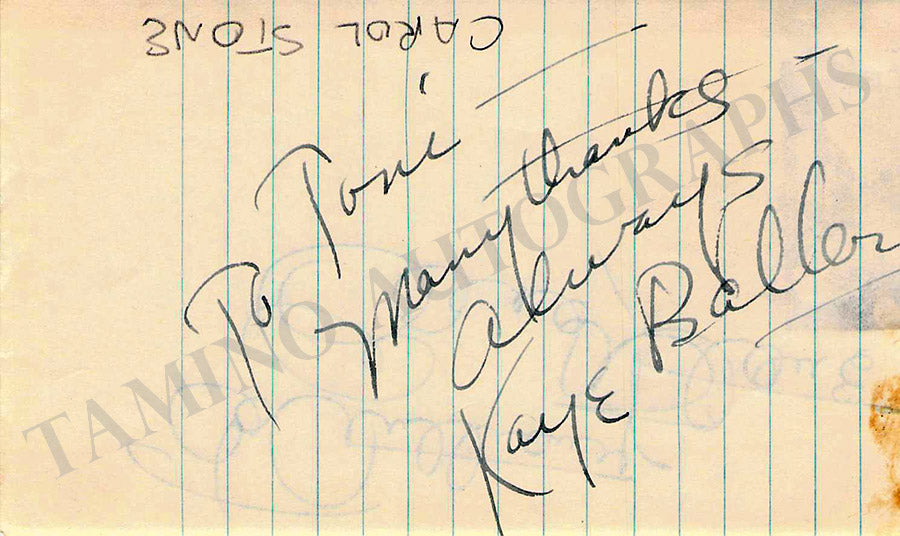 CAROL STONE
To Toni —
Many thanks —
Always
Kaye Ballard
TAMINO AUTOGRAPHS